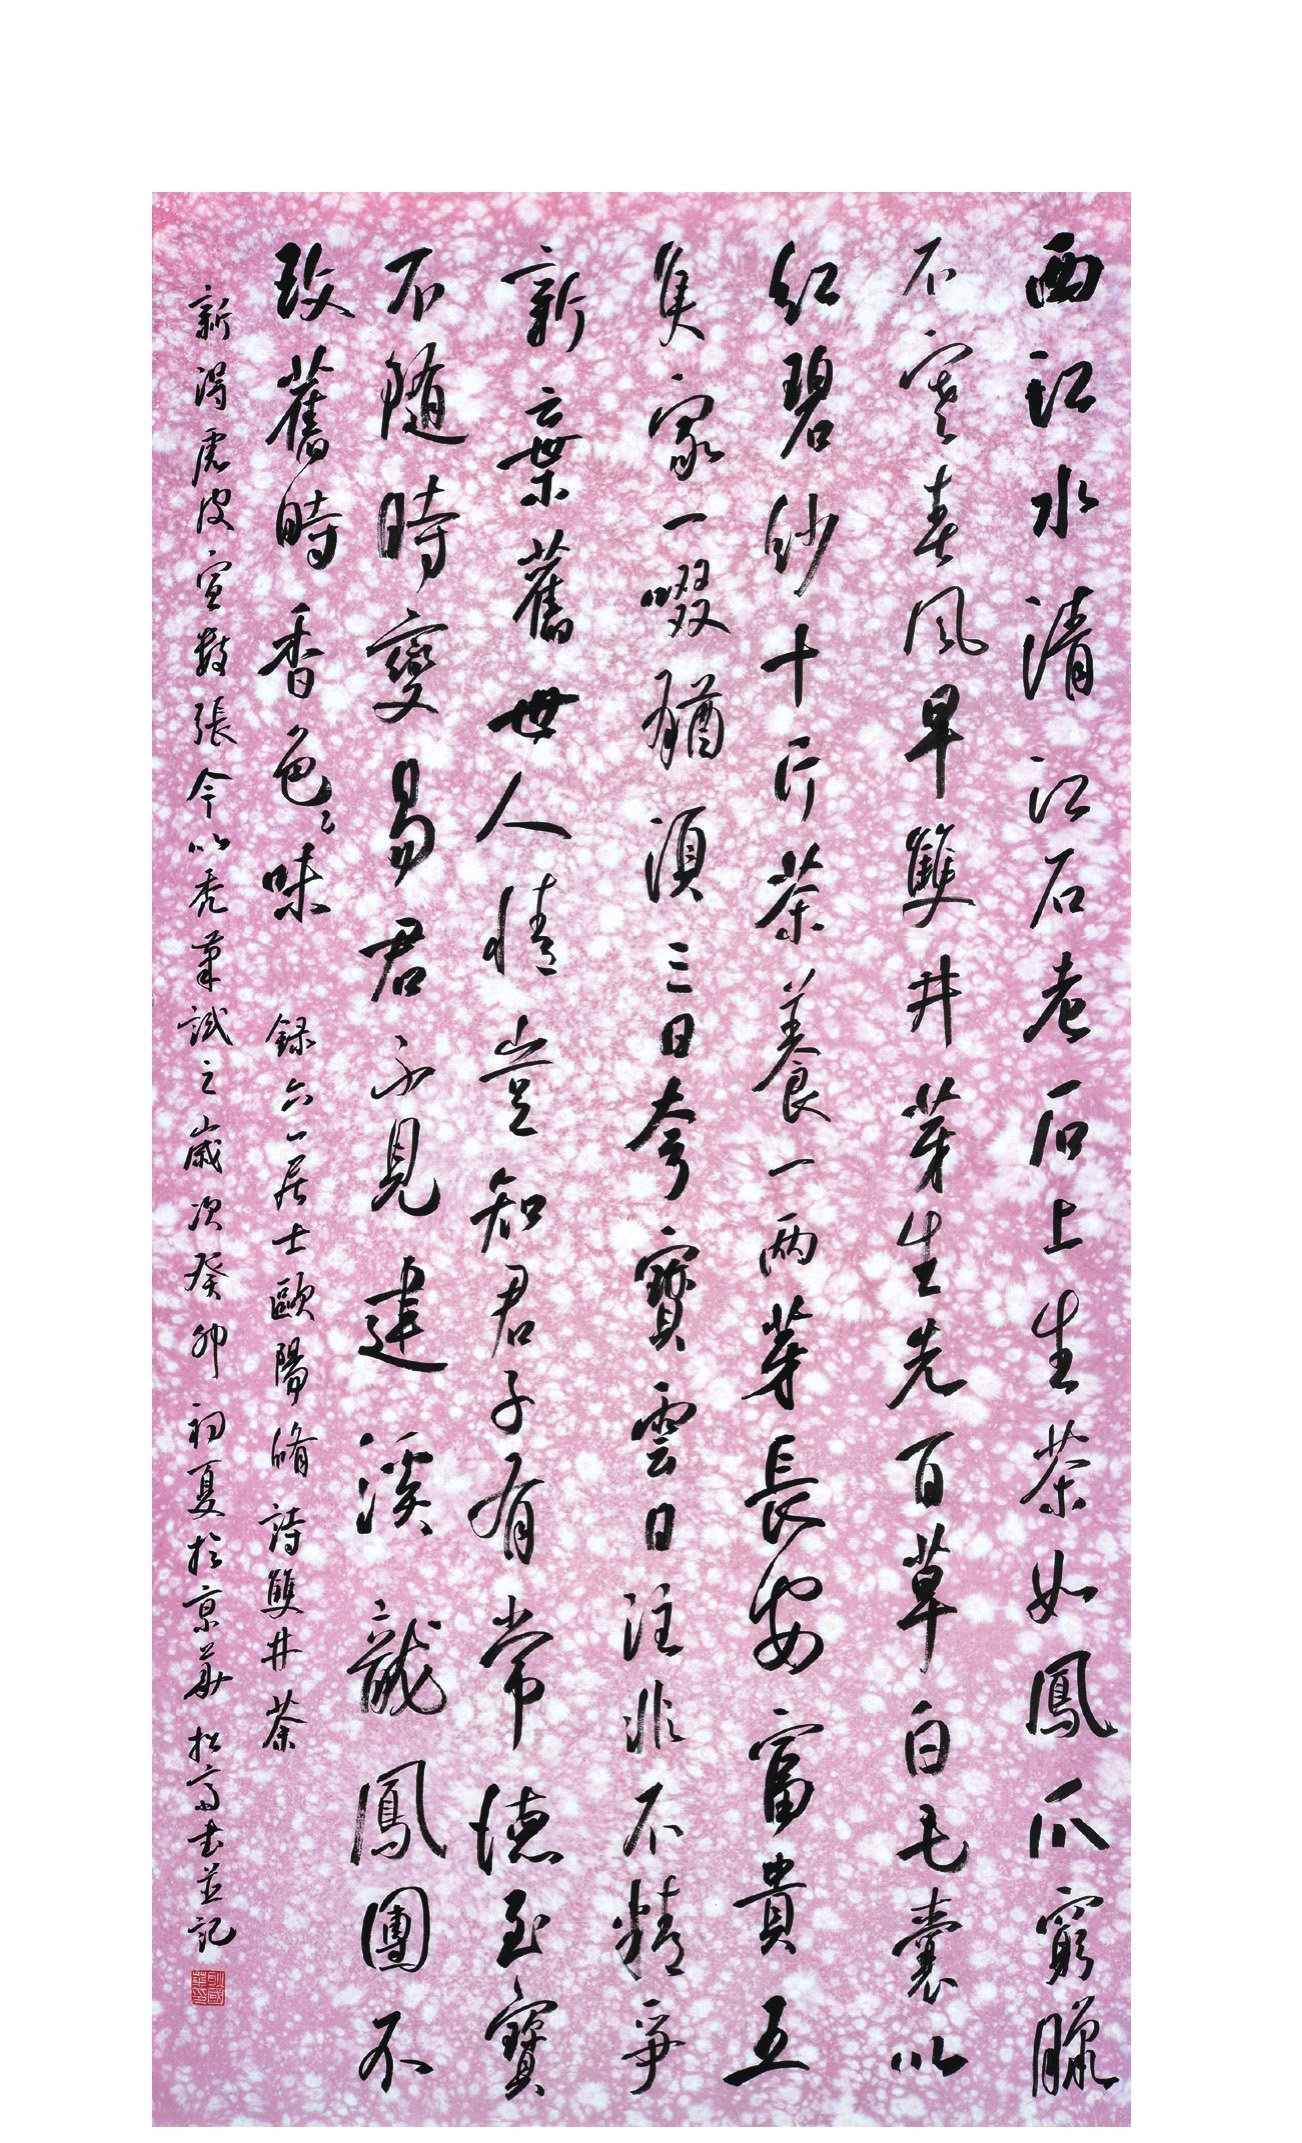 西江水清江石老石上生茶如鳳爪窮臘
不寒春風早雙井芽生先百草白毛囊以
紅碧紗十斤茶養一兩芽長安富貴五
矦家一啜猶須三日夸寶雲日注非不精爭
新棄舊世人情豈知君子有常德至寶
不随時變易君不見建溪龍鳳團不
改舊時香色味
錄六一居士歐陽脩詩雙井茶
新淂虎皮宣數張今以禿筆試之歲次癸卯初夏於京華松高書並記